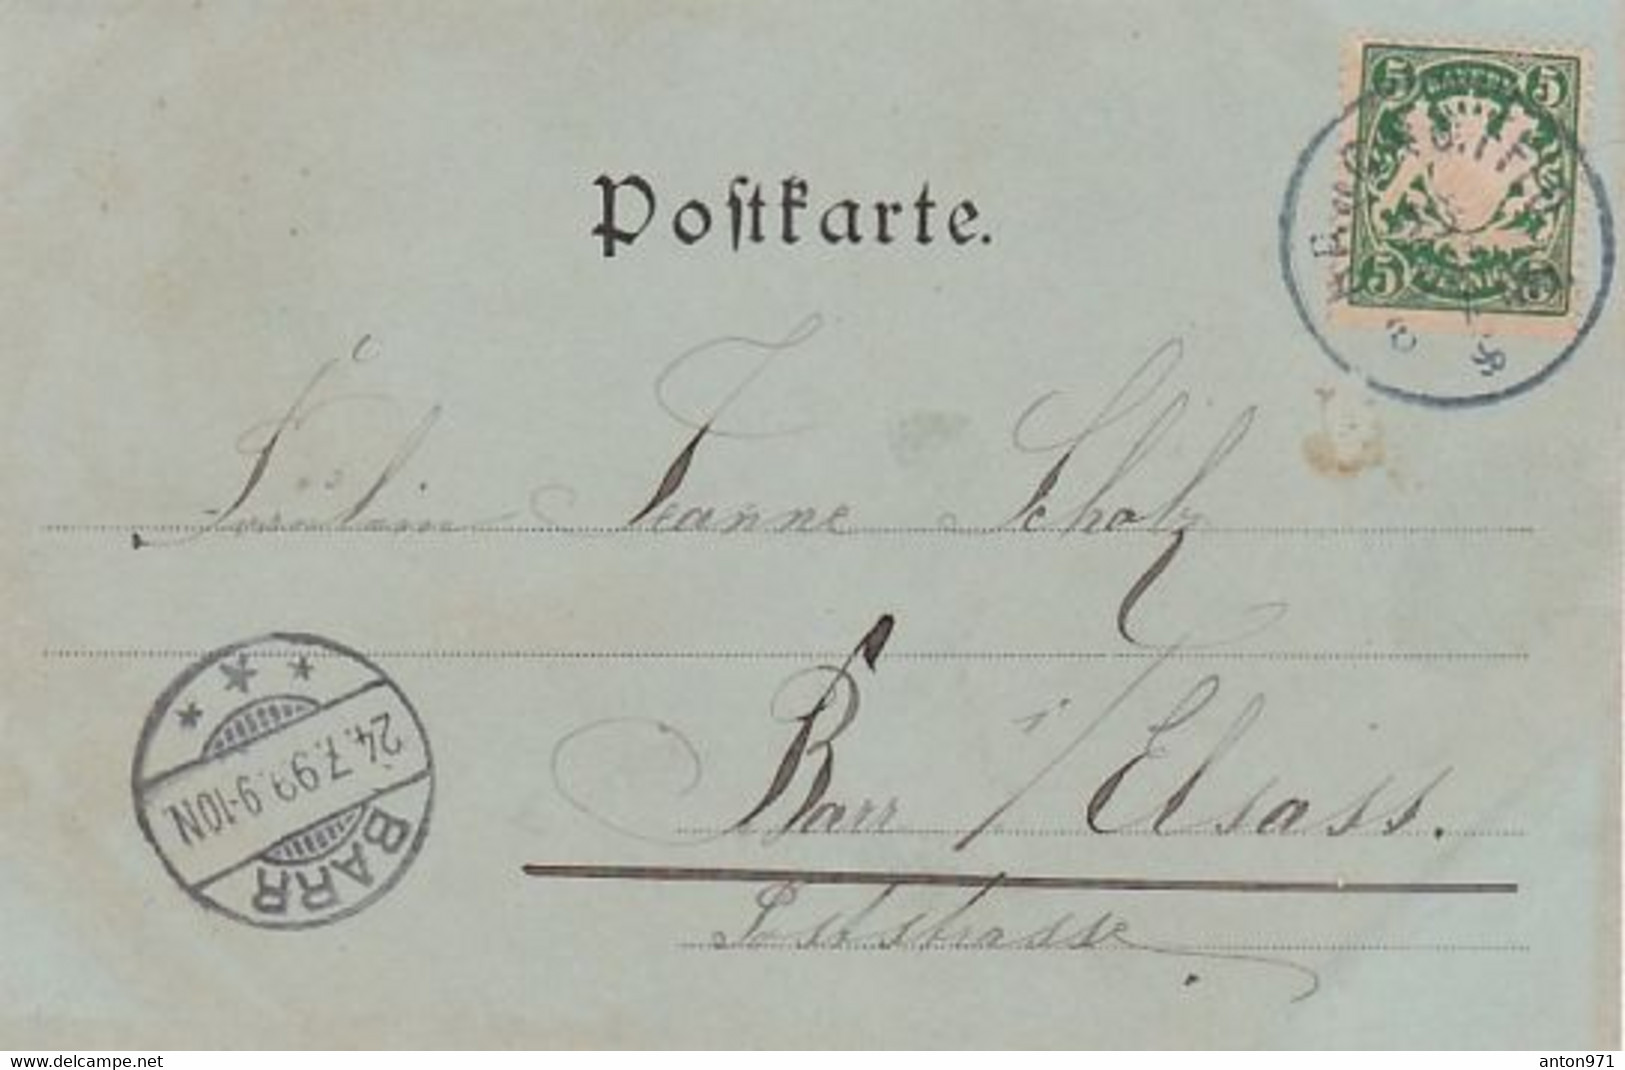 Postkarte.
5 BAYERN 5
5 PFENNIG 5
Fräulein Jeanne Schatz
Barr i/Elsass.
Poststrasse
24.7.99. 9-10N.
BARR
www.delcampe.net
anton971